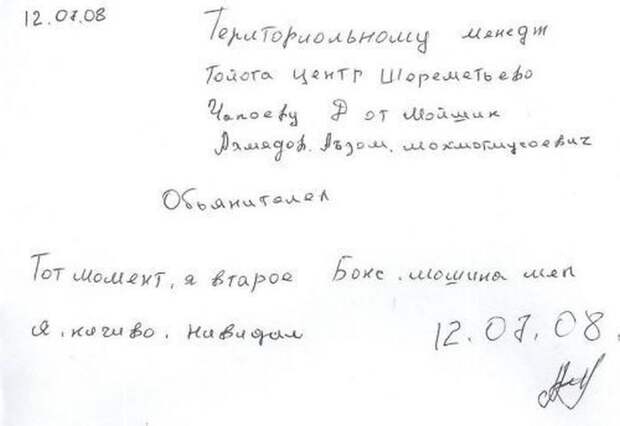 12.07.08
Териториольному менедж
Тойота центр Шореметьево
Чапоеву Д от Мойшик
Ахмядов. Аъзом. мохмотмусоевич
Обьянителел
Тот момент, я второе Бокс. мошина меп
я. ничиво. навидал
12.07.08.